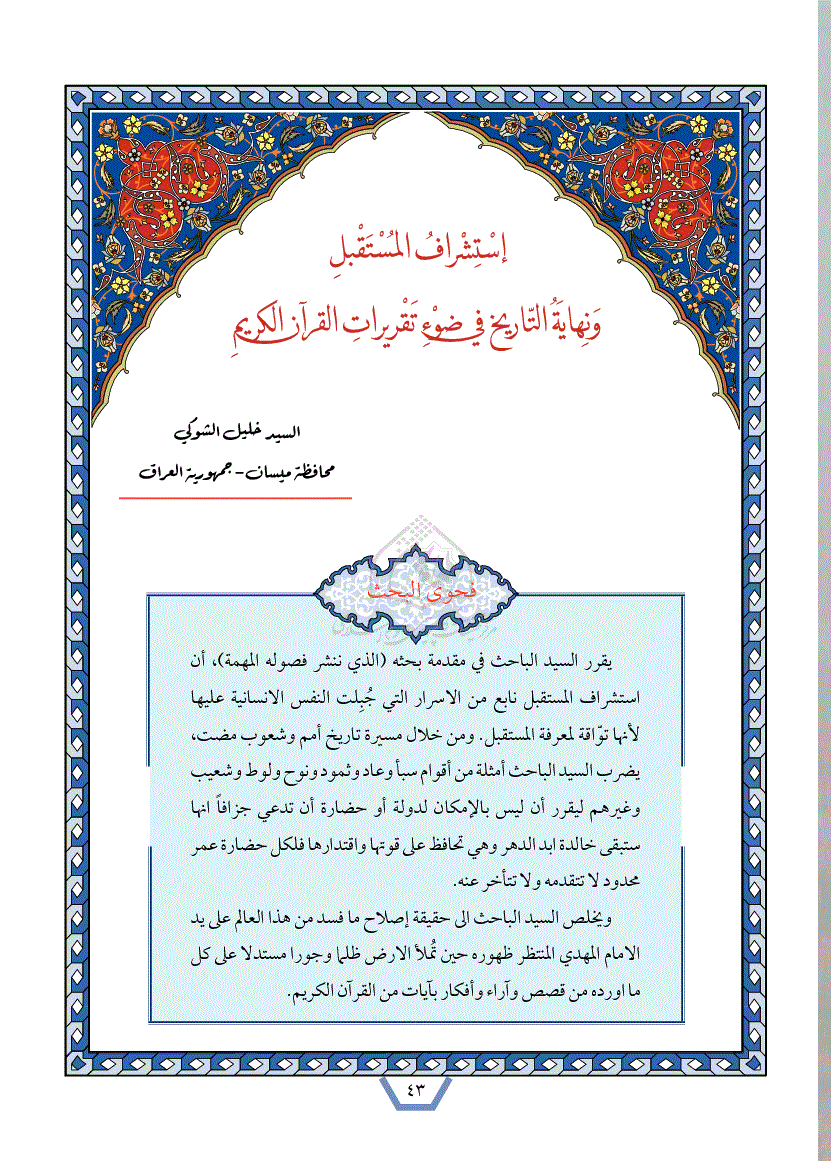 إسْتِشْرافُ المُسْتَقْبلِ
وَنِهايَةُ التّاريخ في ضوْءِ تَقْريراتِ القرآن الكريمِ
السيد خليل الشوكي
محافظة ميسان - جمهورية العراق
فحوى البحث
يقرر السيد الباحث في مقدمة بحثه (الذي ننشر فصوله المهمة)، أن
استشراف المستقبل نابع من الاسرار التي جُبِلت النفس الانسانية عليها
لأنها توّاقة لمعرفة المستقبل. ومن خلال مسيرة تاريخ أمم وشعوب مضت،
يضرب السيد الباحث أمثلة من أقوام سبأ وعاد وثمود ونوح ولوط وشعيب
وغيرهم ليقرر أن ليس بالإمكان لدولة أو حضارة أن تدعي جزافاً انها
ستبقى خالدة ابد الدهر وهي تحافظ على قوتها واقتدارها فلكل حضارة عمر
محدود لا تتقدمه ولا تتأخر عنه.
ويخلص السيد الباحث الى حقيقة إصلاح ما فسد من هذا العالم على يد
الامام المهدي المنتظر ظهوره حين تُملأ الارض ظلما وجورا مستدلا على كل
ما اورده من قصص وآراء وأفكار بآيات من القرآن الكريم.
٤٣